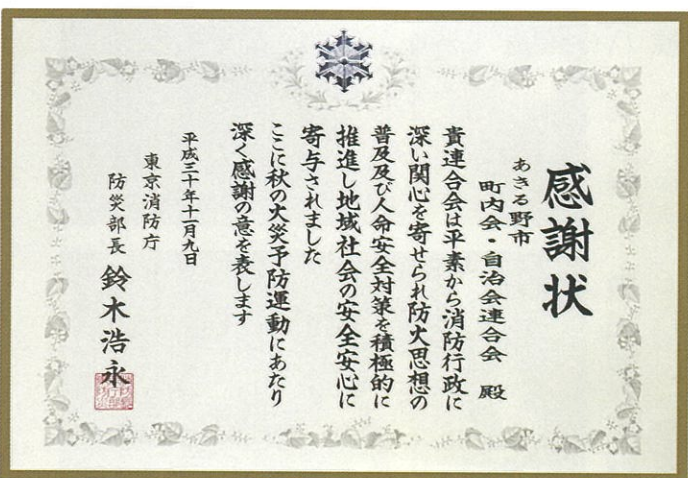 感謝状
あきる野市
町内会・自治会連合会 殿
貴連合会は平素から消防行政に
深い関心を寄せられ防火思想の
普及及び人命安全対策を積極的に
推進し地域社会の安全安心に
寄与されました
ここに秋の火災予防運動にあたり
深く感謝の意を表します
平成三十年十一月九日
東京消防庁
防災部長 鈴木浩永